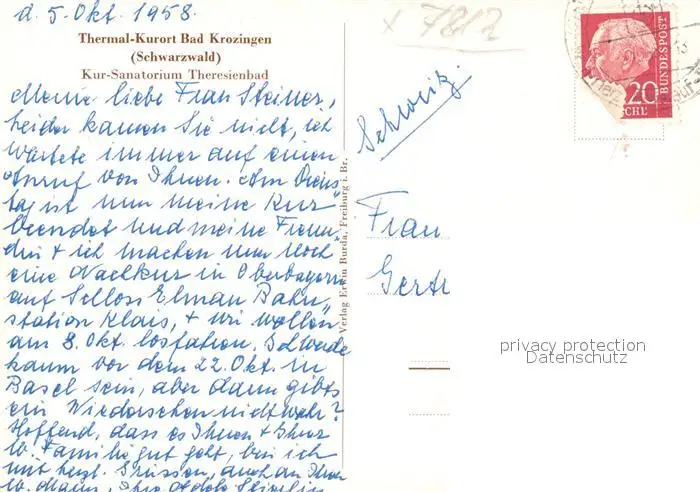 d. 5. Okt. 1958.
Thermal-Kurort Bad Krozingen
(Schwarzwald)
Kur-Sanatorium Theresienbad
Meine liebe Frau Steiner,
leider kamen Sie nicht, ich
wartete immer auf einen
Anruf von Ihnen. Am Diens"
tag ist nun meine Kur
beendet und meine Freun"
din + ich machen nun noch
eine Nachkur in Oberbayern
auf Schloss Elmau Bahn"
station Klais, + wir wollen
am 8. Okt. losfahren. Ich werde
kaum vor dem 22. Okt. in
Basel sein, aber dann gibts
ein Wiedersehen nicht wahr?
Hoffend, dass es Ihnen + Ihrer
lb. Familie gut geht, bin ich
mit herzl. Grüssen, auch an Ihren
lb. Mann, Ihre
Verlag Erwin Burda, Freiburg i. Br.
x 7812
Schweiz.
Frau
Gertr
20
BUNDESPOST
privacy protection
Datenschutz